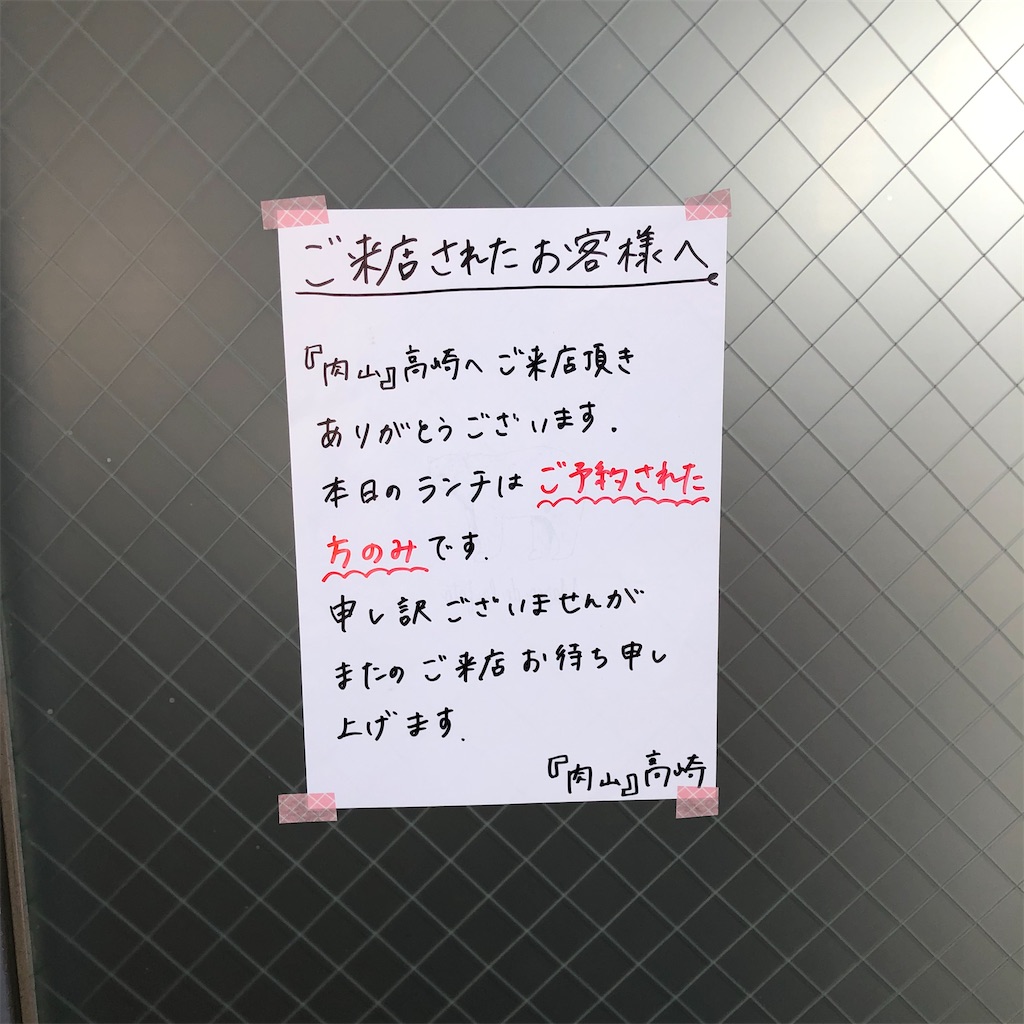 ご来店されたお客様へ
『肉山』高崎へ ご来店頂き
ありがとうございます.
本日の ランチは ご予約された
方のみです.
申し訳ございませんが
またの ご来店 お待ち申し
上げます.
『肉山』高崎